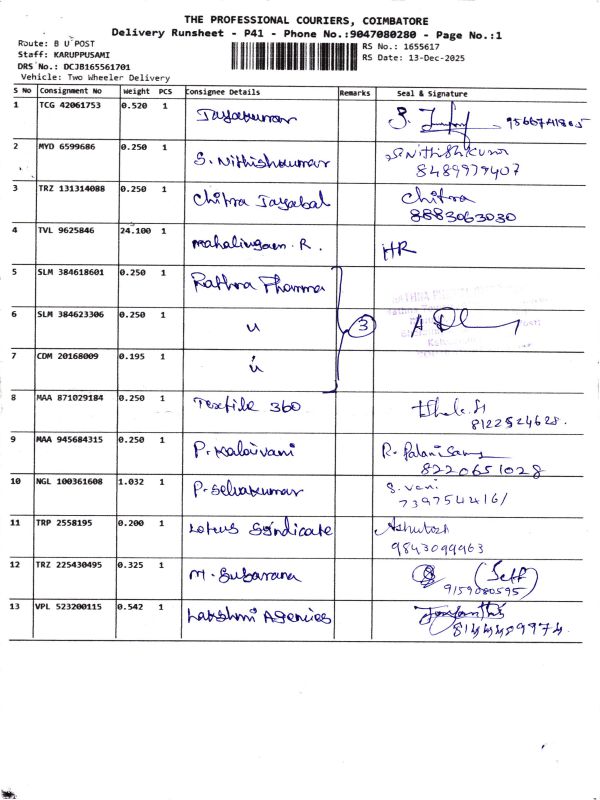 THE PROFESSIONAL COURIERS, COIMBATORE
Delivery Runsheet - P41 - Phone No.:9047080280 - Page No.:1
Route: B U POST
Staff: KARUPPUSAMI
DRS No.: DCJB165561701
Vehicle: Two Wheeler Delivery
RS No.: 1655617
RS Date: 13-Dec-2025
S No Consignment No Weight PCS Consignee Details Remarks Seal & Signature
1 TCG 42061753 0.520 1 Jayakumar
2 MYD 6599686 0.250 1 S. Nithishkumar S.Nithishkumar
8489979407
3 TRZ 131314088 0.250 1 Chitra Jayabal Chitra
8883063030
4 TVL 9625846 24.100 1 Mahalingam. R. HR
5 SLM 384618601 0.250 1 Rathna Pharma
6 SLM 384623306 0.250 1 u 3
7 CDM 20168009 0.195 1 u
8 MAA 871029184 0.250 1 Textile 360
8122524628.
9 MAA 945684315 0.250 1 P. Kalaivani R. Palanisamy
8220651028
10 NGL 100361608 1.032 1 P. Selvakumar S. Vani
7397544161
11 TRP 2558195 0.200 1 Lotus Syndicate Ashutosh
9843099963
12 TRZ 225430495 0.325 1 M. Subarana (Self)
9159080595
13 VPL 523200115 0.542 1 Lakshmi Agencies Jayanthi
8144489974